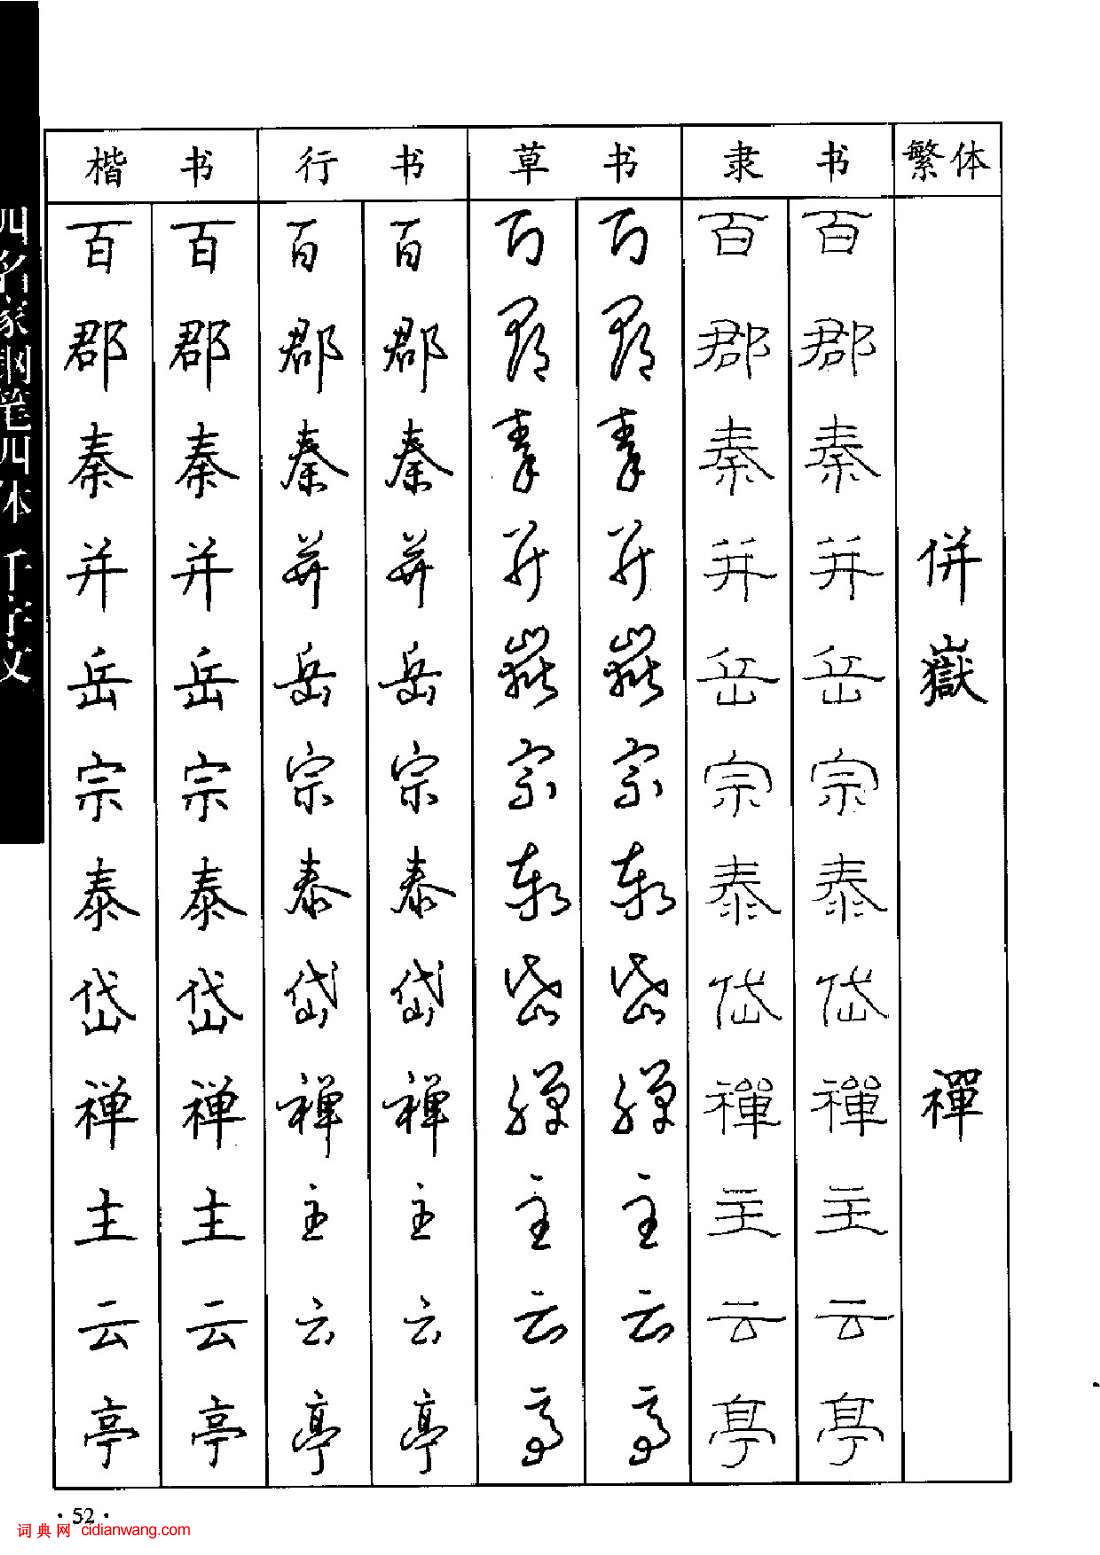 四名家钢笔四体 千字文
楷 书 行 书 草 书 隶 书 繁体
百 百 百 百 百 百 百 百
郡 郡 郡 郡 郡 郡 郡 郡
秦 秦 秦 秦 秦 秦 秦 秦
并 并 并 并 并 并 并 并 併
岳 岳 岳 岳 嶽 嶽 岳 岳 嶽
宗 宗 宗 宗 宗 宗 宗 宗
泰 泰 泰 泰 泰 泰 泰 泰
岱 岱 岱 岱 岱 岱 岱 岱
禅 禅 禅 禅 禪 禪 禪 禪 禪
主 主 主 主 主 主 主 主
云 云 云 云 云 云 云 云
亭 亭 亭 亭 亭 亭 亭 亭
·52·
词典网 cidianwang.com